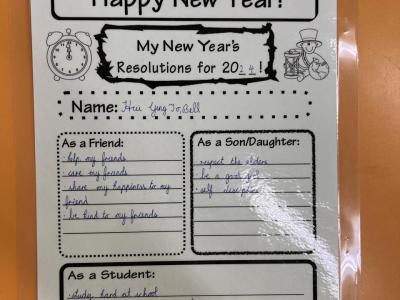 Happy New Year!
My New Year's
Resolutions for 2024!
Name: Hsu Ying To, Bell
As a Friend:
· help my friends
· care my friends
· share my happiness to my
friend
· be kind to my friends
As a Son/Daughter:
· respect the elders
· be a good girl
· self discipline
As a Student:
· study hard at school